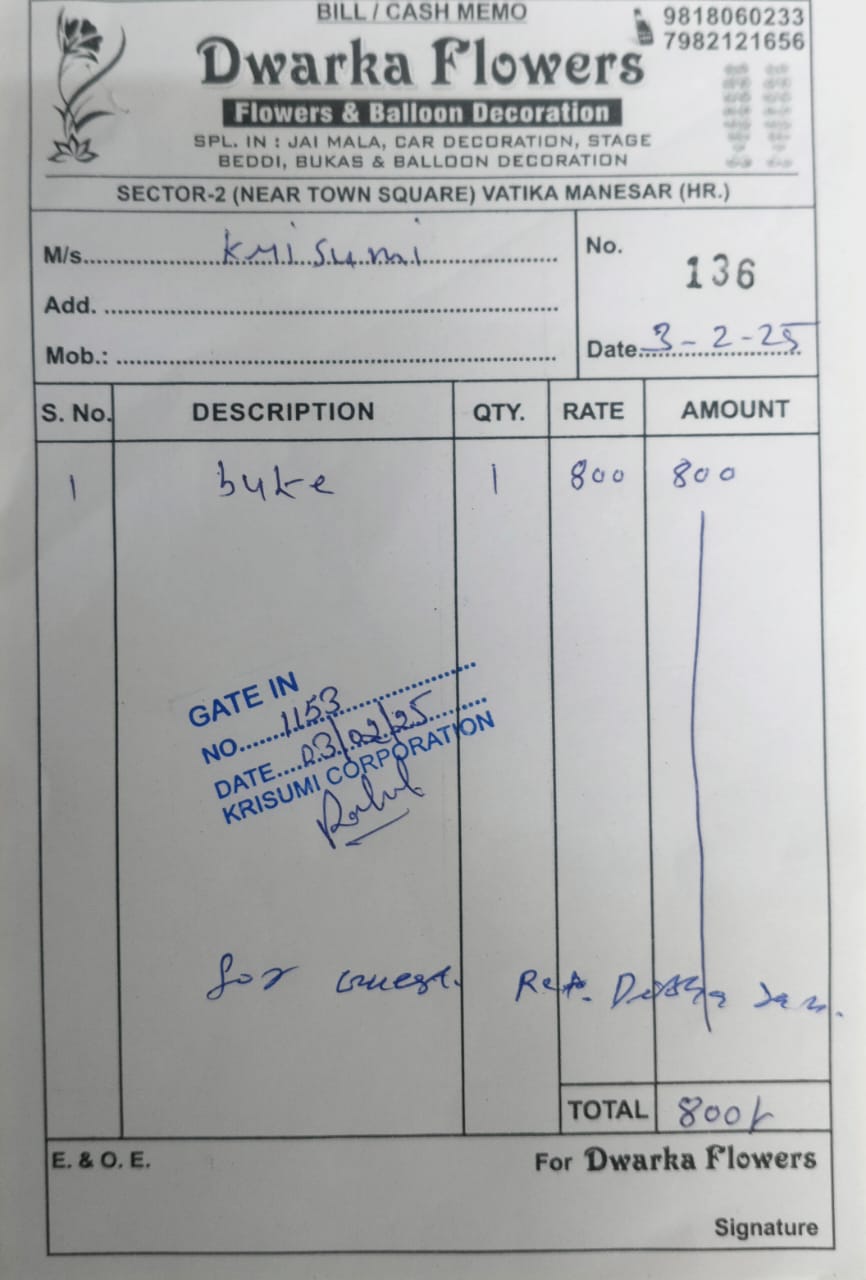 BILL / CASH MEMO
9818060233
7982121656
Dwarka Flowers
Flowers & Balloon Decoration
SPL. IN : JAI MALA, CAR DECORATION, STAGE
BEDDI, BUKAS & BALLOON DECORATION
SECTOR-2 (NEAR TOWN SQUARE) VATIKA MANESAR (HR.)
M/s. Krisumi
No. 136
Add.
Mob.:
Date 3-2-25
S. No. DESCRIPTION QTY. RATE AMOUNT
1 buke 1 800 800
GATE IN
NO. 1153
DATE 03/02/25
KRISUMI CORPORATION
for guest. Ref.
TOTAL 800/-
E. & O. E.
For Dwarka Flowers
Signature